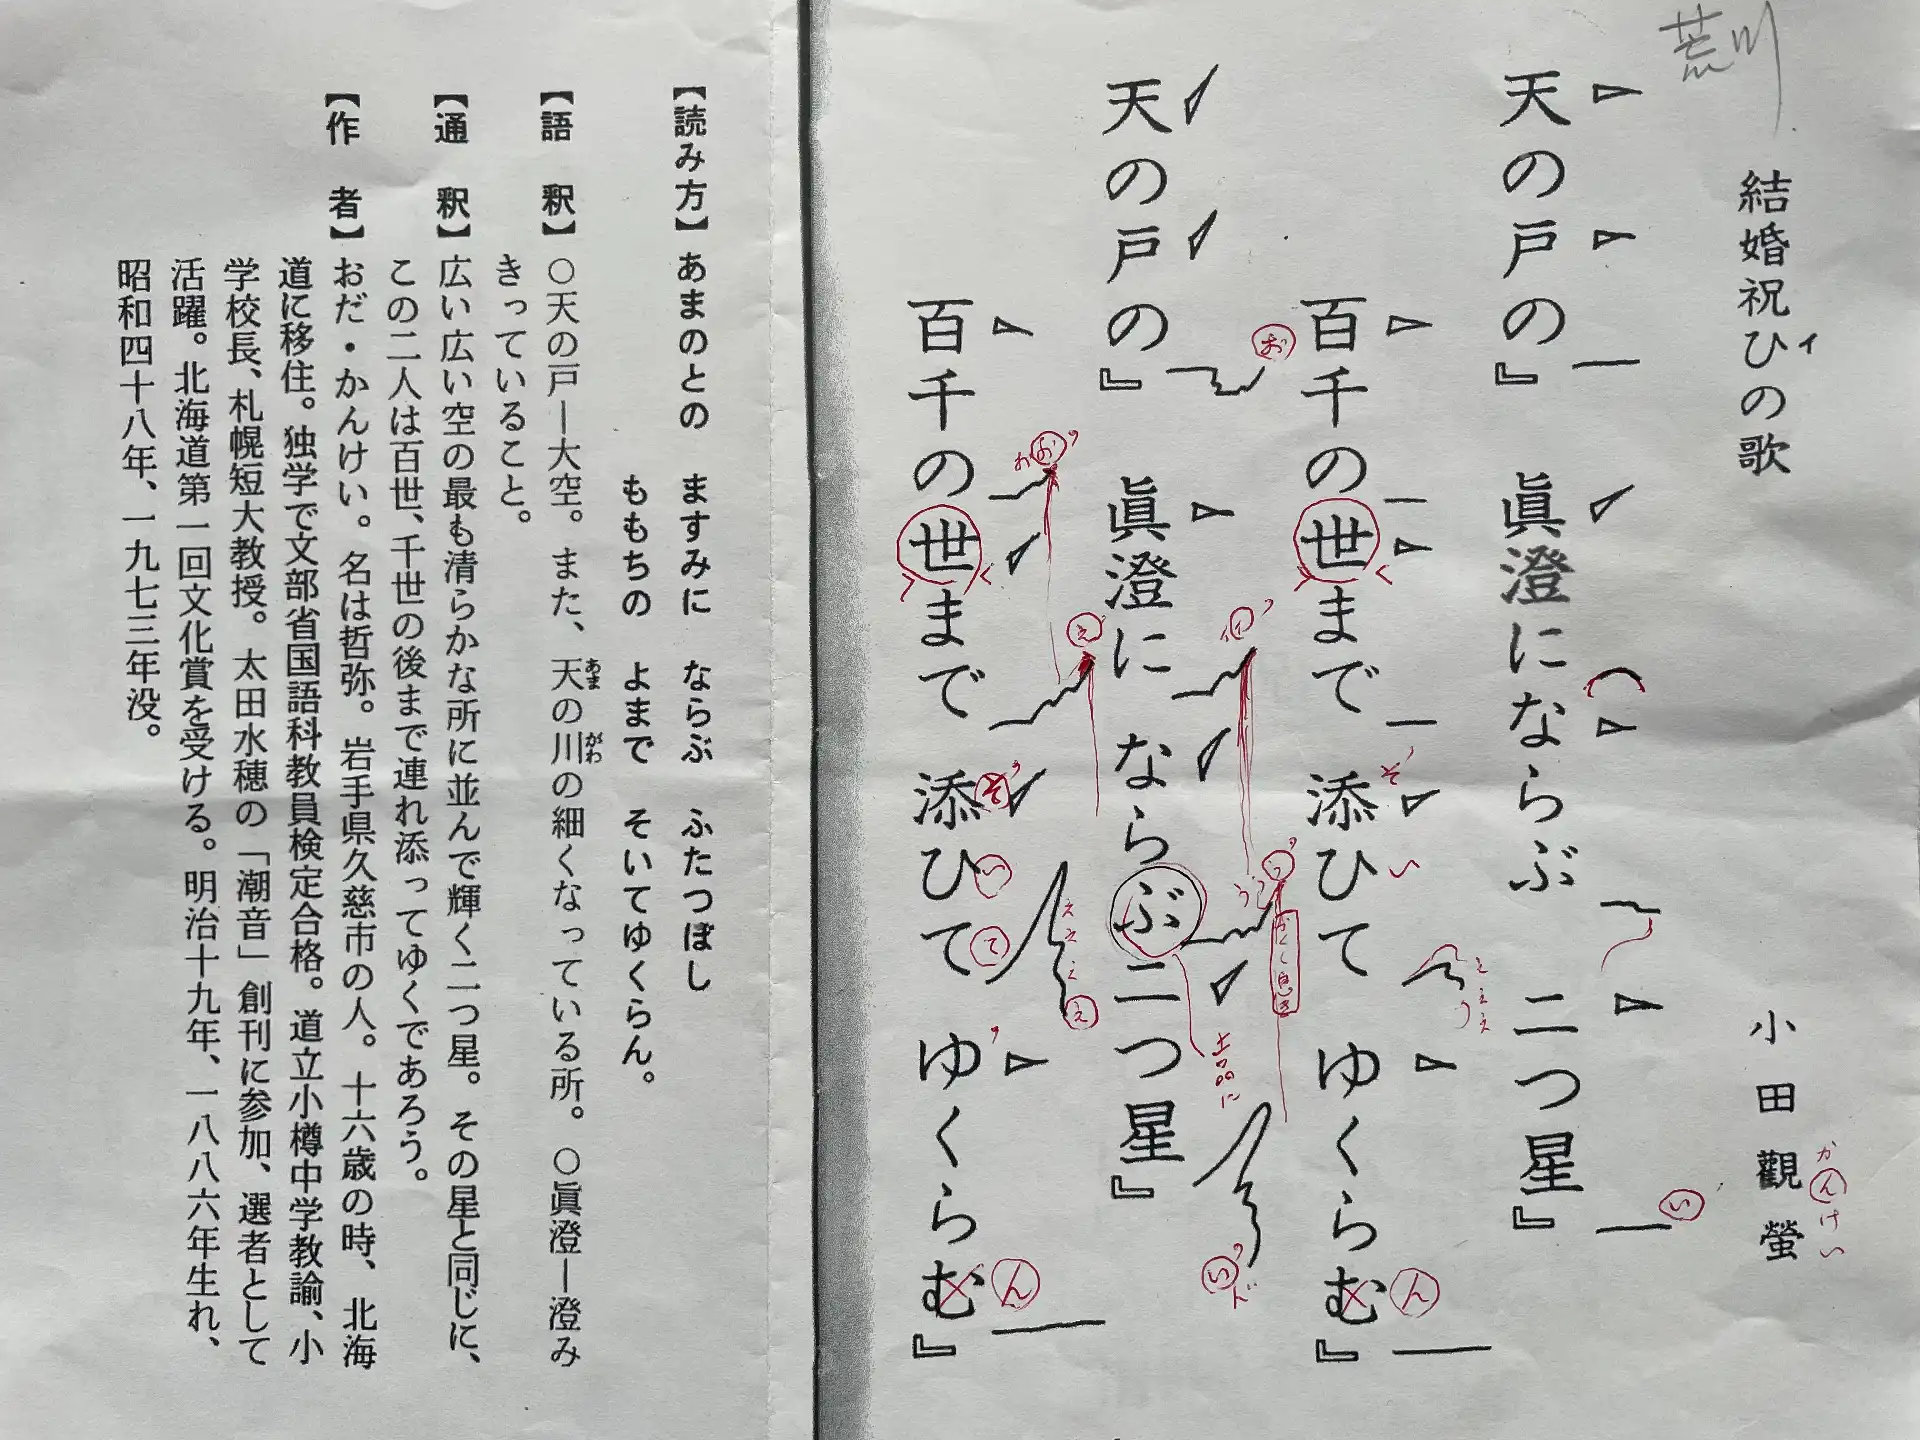 荒川
結婚祝ひの歌
イ
小田觀螢
かんけい
天の戸の』 眞澄にならぶ 二つ星』
い
百千の世まで 添ひて ゆくらむ』
そ い ん
天の戸の』 眞澄に ならぶ 二つ星』
お イ う い
百千の世まで 添ひて ゆくらむ』
お え そ い て ん
ええええ
【読み方】あまのとの ますみに ならぶ ふたつぼし
ももちの よまで そいてゆくらん。
【語 釈】○天の戸―大空。また、天の川の細くなっている所。○眞澄―澄み
あま がわ
きっていること。
【通 釈】広い広い空の最も清らかな所に並んで輝く二つ星。その星と同じに、
この二人は百世、千世の後まで連れ添ってゆくであろう。
【作 者】おだ・かんけい。名は哲弥。岩手県久慈市の人。十六歳の時、北海
道に移住。独学で文部省国語科教員検定合格。道立小樽中学教諭、小
学校長、札幌短大教授。太田水穂の「潮音」創刊に参加、選者として
活躍。北海道第一回文化賞を受ける。明治十九年、一八八六年生れ、
昭和四十八年、一九七三年没。